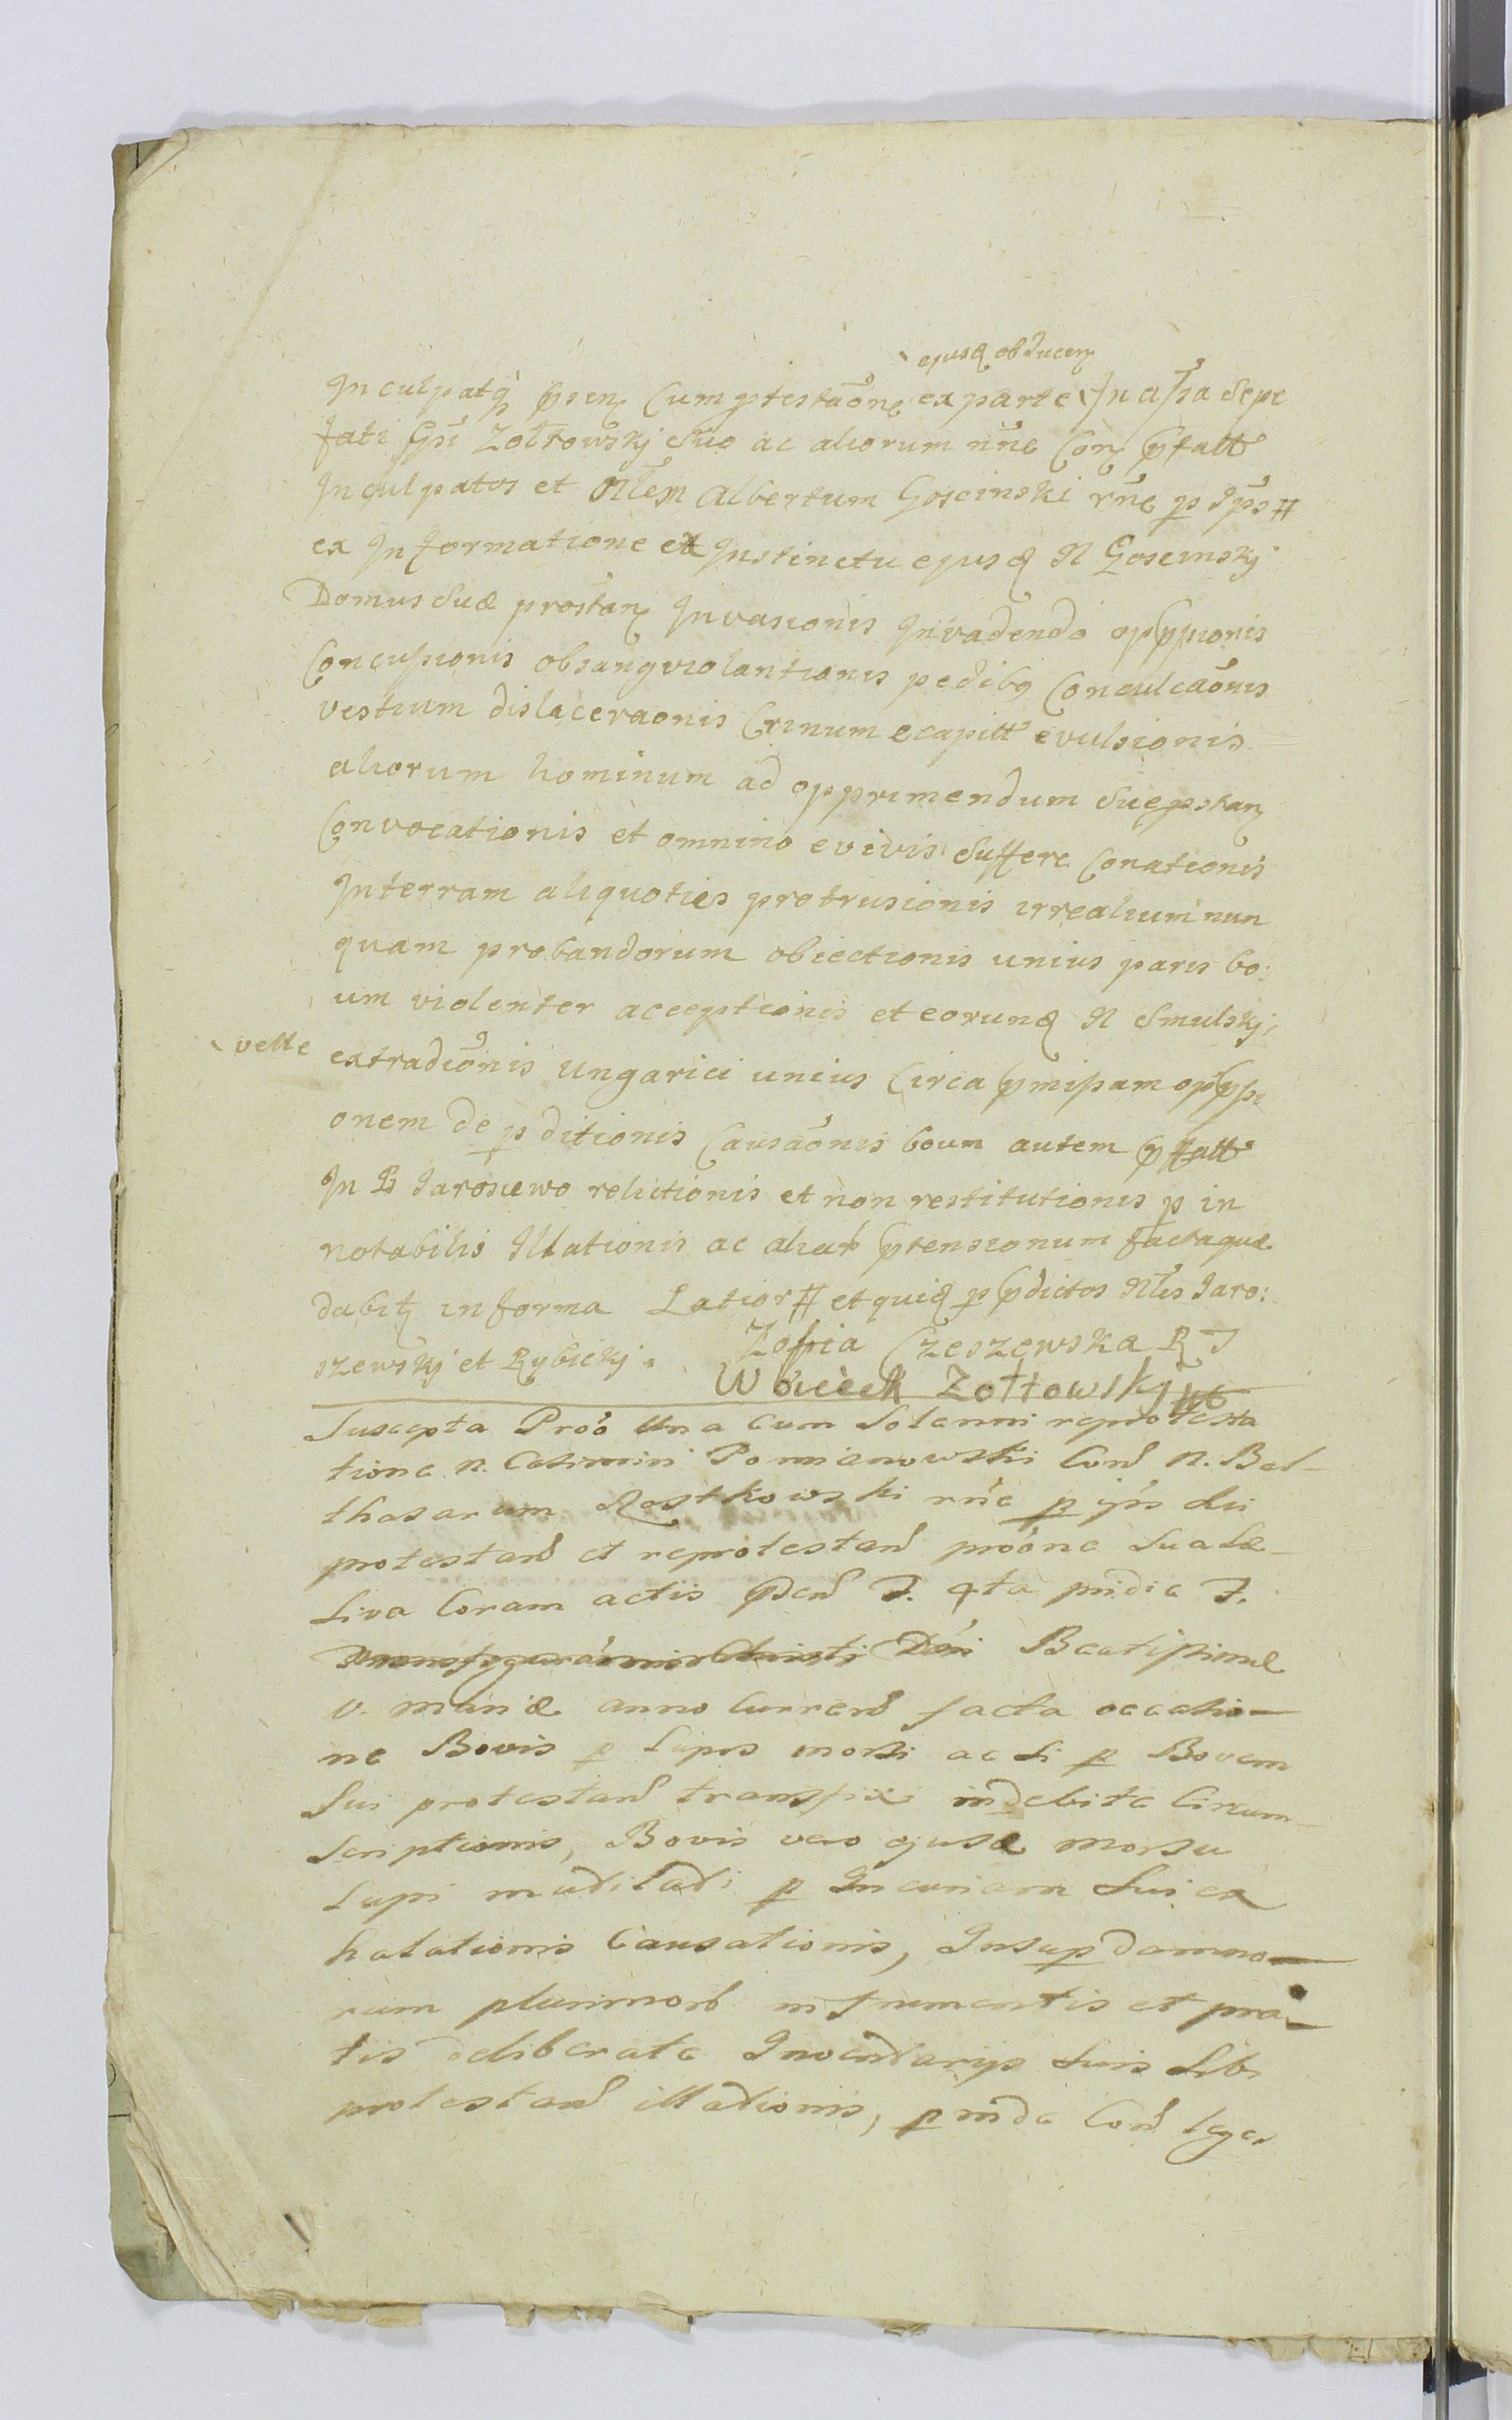 ejusq obducen
Inculpatq psen Cum ptestaone ex parte In assa sepe
fati Gsi Zołtowskj suo ac aliorum nne Con pfatt
Inculpatos et Nlem Albertum Goscinski rne p Ipso
ex Informatione et Instinctu ejusq N Goscinskj
Domus suæ prostan Invasionis Invadendo oppionis
Concussionis obsangviolantionis pedibq Conculcaonis
vestium dislaceraonis Crinum e capitt evulsionis
aliorum hominum ad opprimendum sue pstan
Convocationis et omnino e vivis sufferre Conationis
In terram aliquoties protrusionis irrealium nun
quam probandorum obiectionis unius paris bo:
um violenter acceptionis et eorunq N Smulskj
velle
extradionis Ungarici unius Circa pmissam oppssi
onem de pditionis Causaonis boun autem pffatt
In B Jarosiewo relictionis et non restitutionis p in
notabilis Illationis ac aliar ptensionum facta quæ
dabitq in forma Latior et quiq p pdictos Nles Jaro:
szewskj et Rybickj.
Zofia Czeszewska R J
Woiciech Zołtowskj
Suscepta Proo Una cum Solenni reprotesta
tione n. Casimiri Pomianowski Con n. Bal-
thasarum Rostkowski rne p ips sui
protestan et reprotestan proone sua læ-
siva Coram actis psen F. 4ta pridie F.
Dni Beatissimæ
V. mariæ anno Curren facta occasio-
ne Bovis p Lupos morsi ac si p Bovem
Sui protestan transfixi indebite Circum-
scriptionis, Bovis vero ejusq morsu
Lupi mutilati p Incuriam Sui ex
halationis Causationis, Insup damno-
rum plurimor in frumentis et pra-
tis deliberate Inventarijs suis sibi
protestan illationis, p inde Con leges